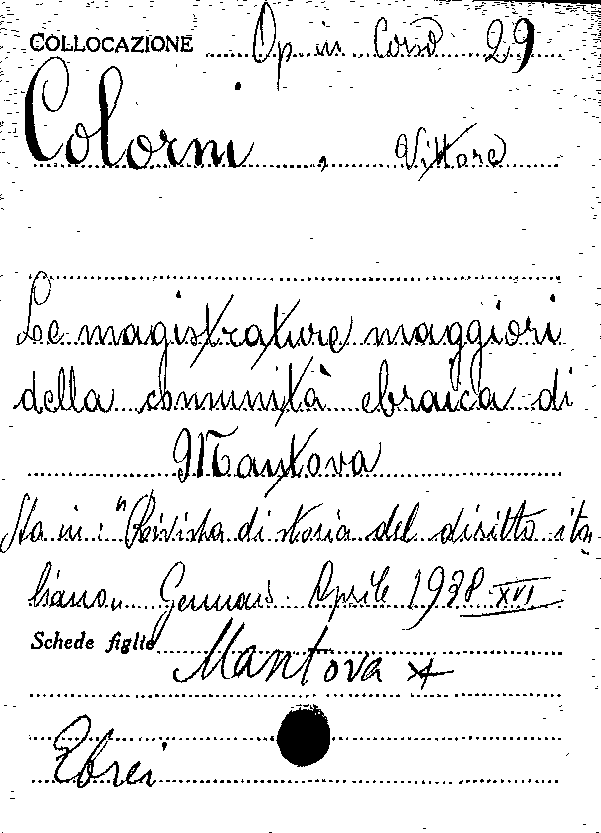 COLLOCAZIONE Op in Corso 29
Colorni, Vittore
Le magistrature maggiori
della comunità ebraica di
Mantova
Sta in: "Rivista di storia del diritto ita
liano" Gennaio. Aprile 1938-XVI
Schede figlie
Mantova
Ebrei